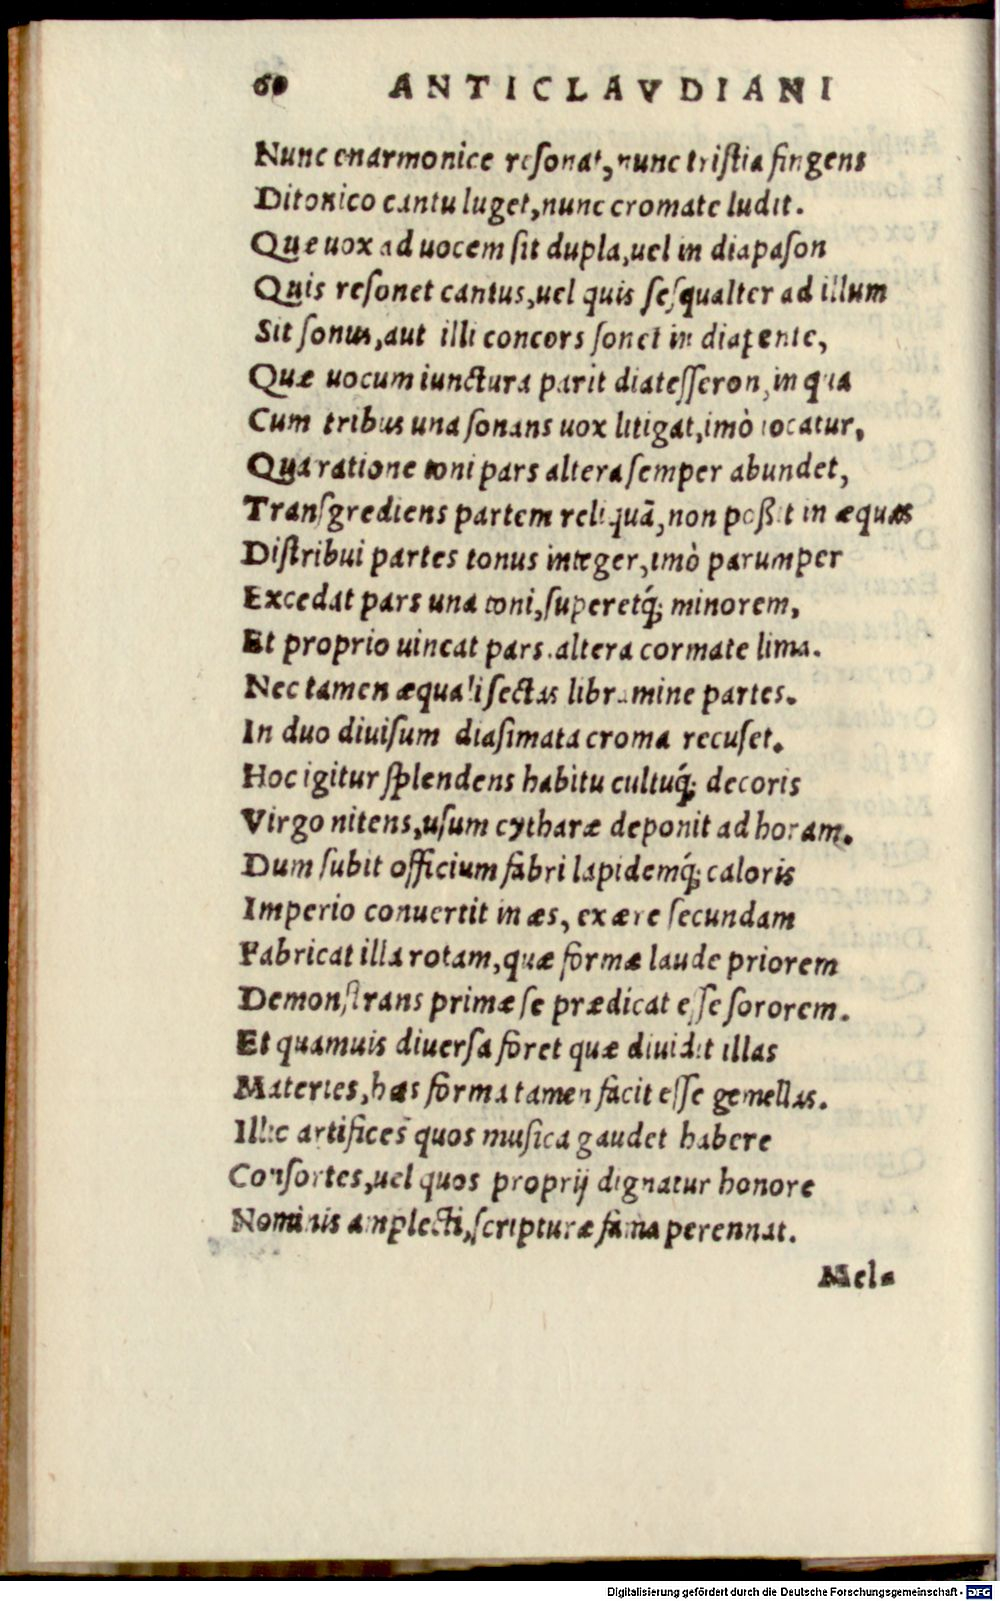 60 ANTICLAVDIANI
Nunc enarmonice resonat, nunc tristia fingens
Ditonico cantu luget, nunc cromate ludit.
Quæ uox ad uocem sit dupla, uel in diapason
Quis resonet cantus, uel quis sesqualter ad illum
Sit sonus, aut illi concors sonet in diapente,
Quæ uocum iunctura parit diatesseron, in qua
Cum tribus una sonans uox litigat, imò iocatur,
Qua ratione toni pars altera semper abundet,
Transgrediens partem reliquã, non poßit in æquas
Distribui partes tonus integer, imò parumper
Excedat pars una toni, superetq́; minorem,
Et proprio uincat pars altera cormate lima.
Nec tamen æquali sectas libramine partes.
In duo diuisum diasimata croma recuset.
Hoc igitur splendens habitu cultuq́; decoris
Virgo nitens, usum cytharæ deponit ad horam.
Dum subit officium fabri lapidemq́; caloris
Imperio conuertit in æs, ex ære secundam
Fabricat illa rotam, quæ formæ laude priorem
Demonstrans primæ se prædicat esse sororem.
Et quamuis diuersa foret quæ diuidit illas
Materies, has forma tamen facit esse gemellas.
Illic artifices quos musica gaudet habere
Consortes, uel quos proprij dignatur honore
Nominis amplecti, scripturæ fama perennat.
Mel-
Digitalisierung gefördert durch die Deutsche Forschungsgemeinschaft - DFG